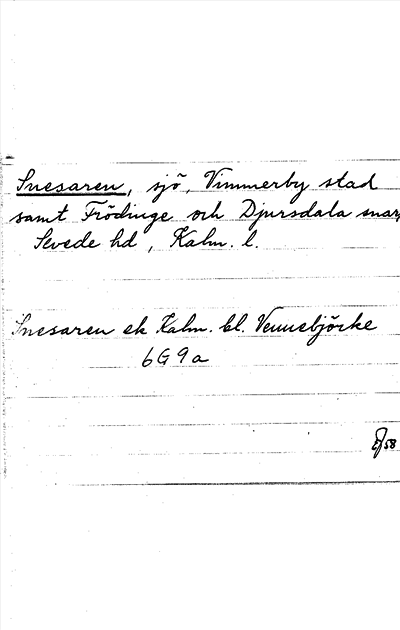 Snesaren, sjö, Vimmerby stad
samt Frödinge och Djursdala snar,
Sevede hd, Kalm. l.
Snesaren ek Kalm. bl. Vennebjörke
6G9a
58